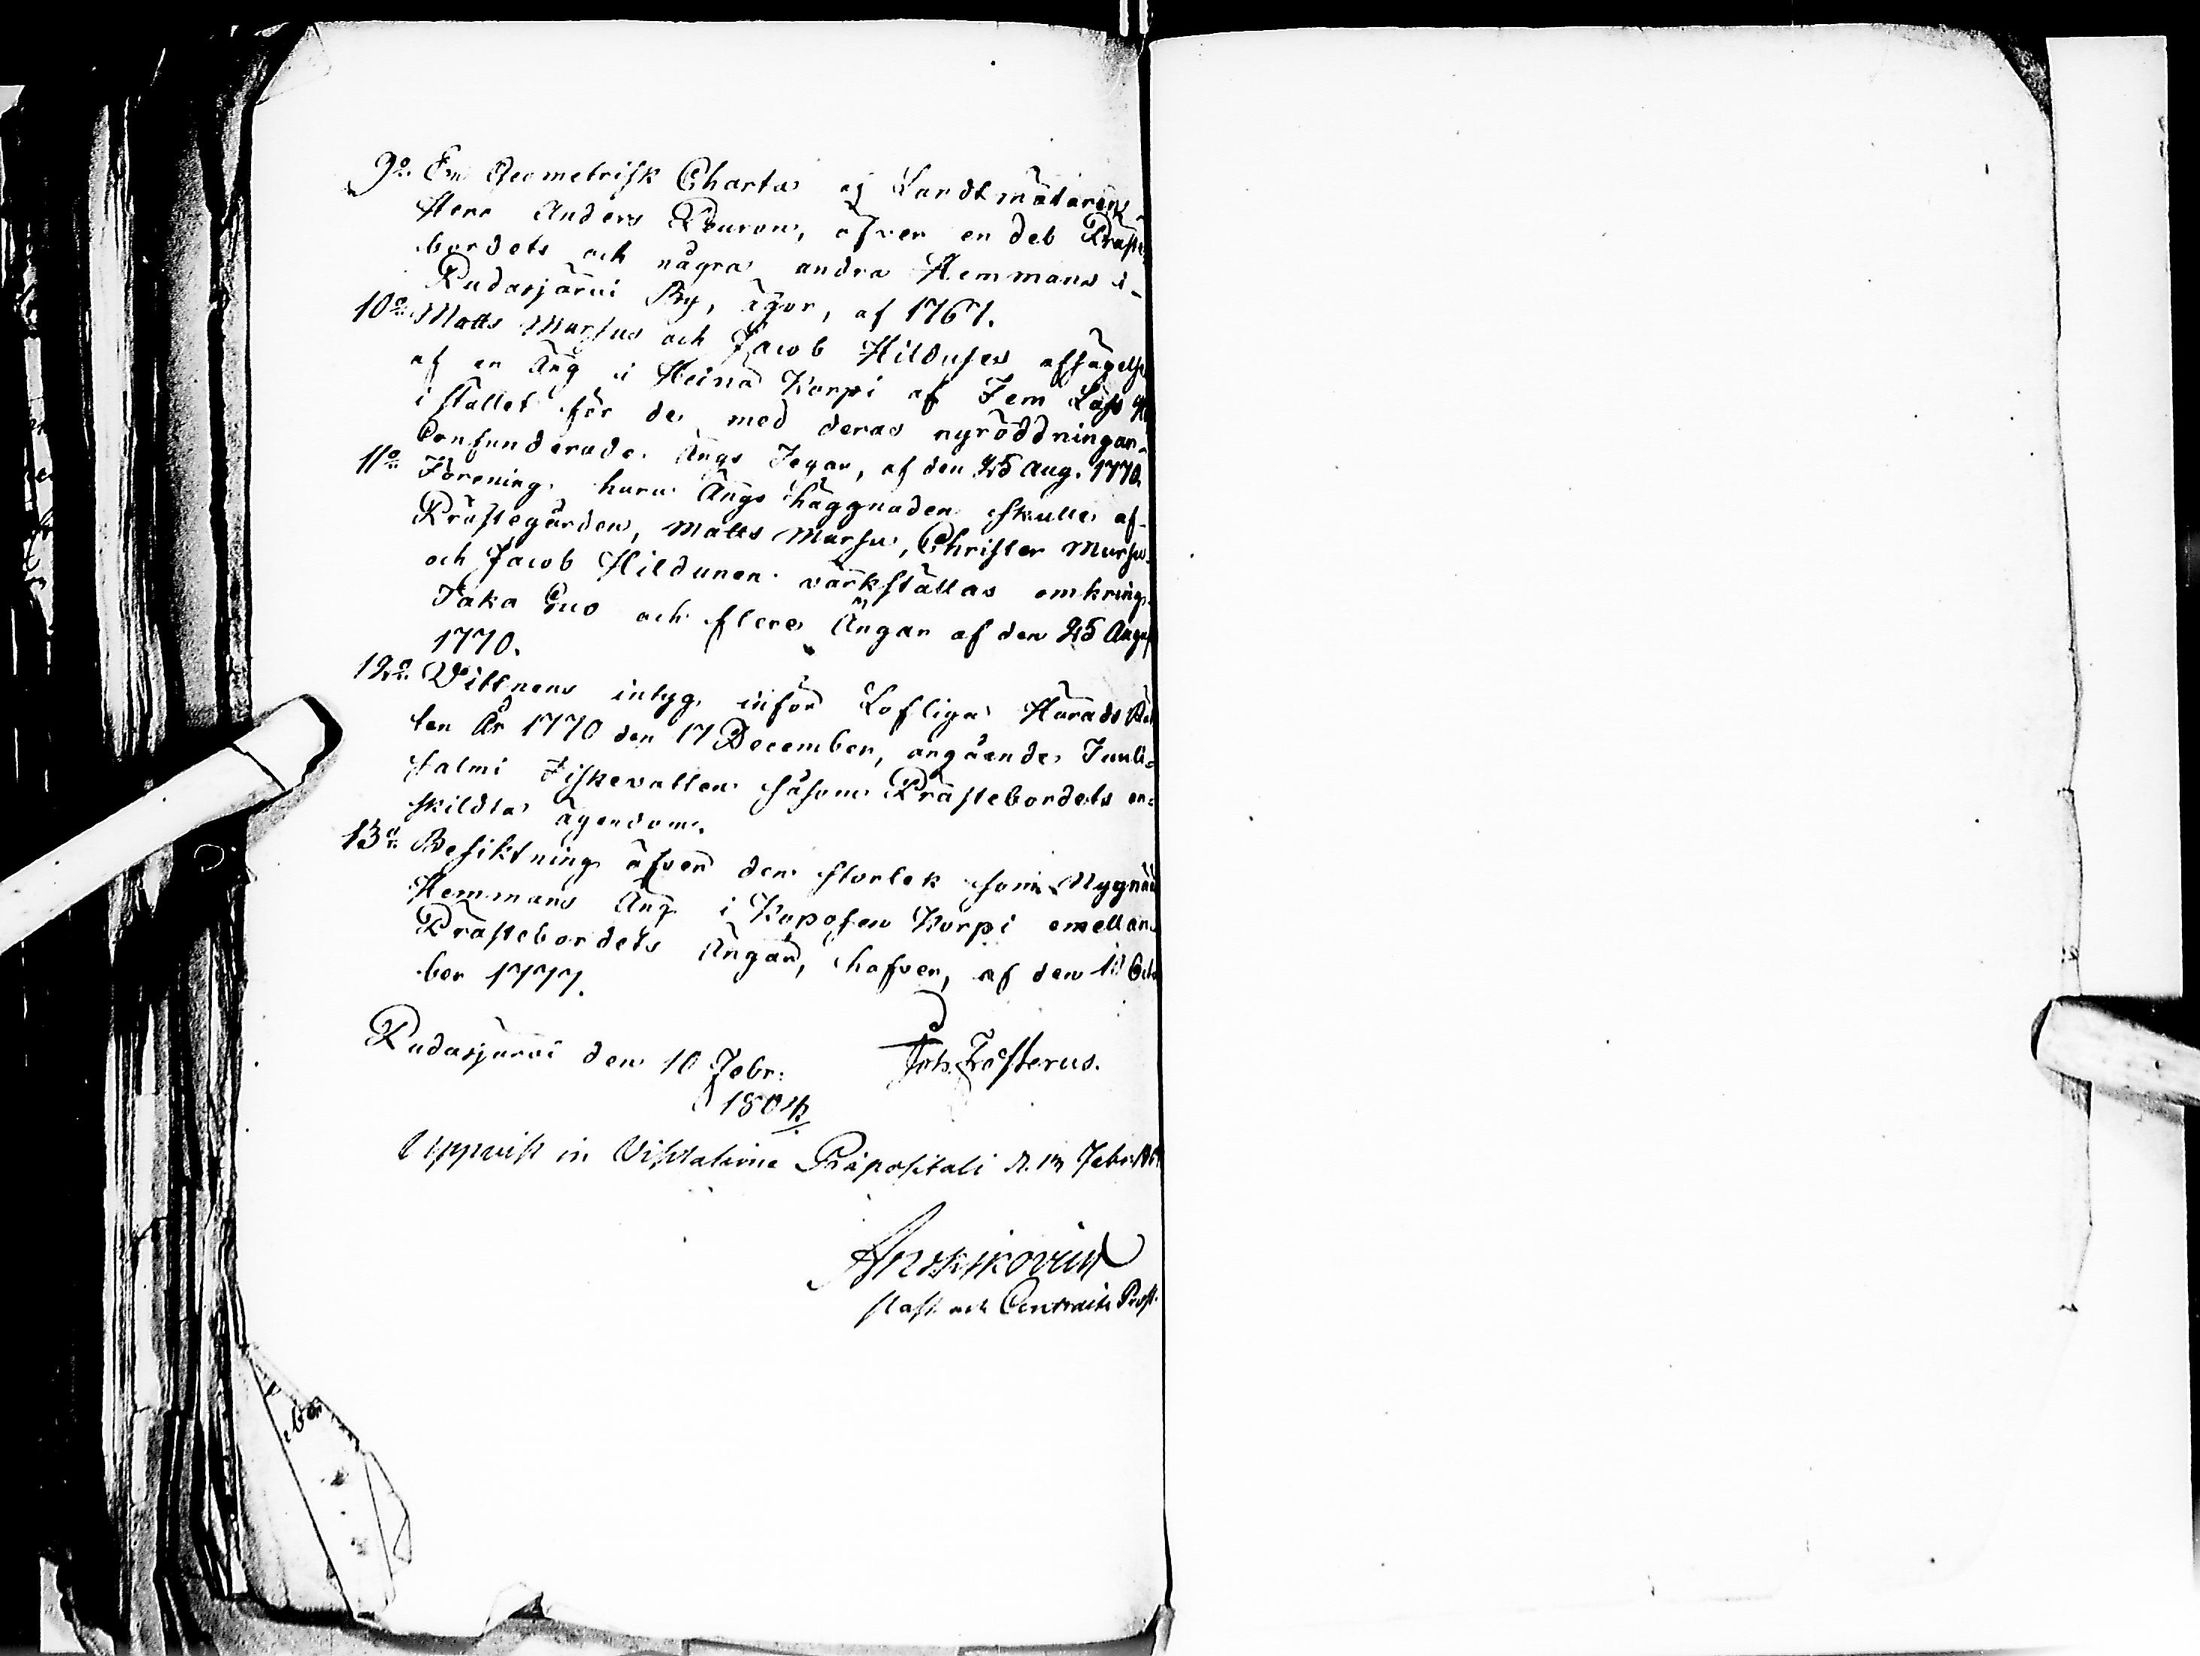 9:o En Geometrisk Charta af Landtmätaren
Herr Anders Peuron, öfver en del Präste
bordets och några andra Hemmans i
Pudasjärvi By, ägor, af 1767.
10:o Matts Mursus och Jacob Hilduses afsägelse
af en Äng i Heinä Korpi af Fem Lass
i stället för de med deras nyröddningar
Confunderade Ängs Tegar, af den 25 Aug. 1770.
11:o Förening huru Ängs häggnaden skulle af
Prästegården, Matts Mursu, Christer Mursu
och Jacob Hildunen värkställas omkring
Taka Suo och flere Ängar af den 25 Aug
1770.
12:o Vittnens intyg inför Lofliga Härads Rät
ten År 1770 den 17 December, angående Tuuli
salmi Fiskevatten såsom Prästebordets en
skildta ägendom.
13:o Besiktning öfver den storlek som Nygård
Hemmans Äng i Koposen Korpi emellan
Prästebordets Ängar, hafver, af den 10 Octo
ber 1777.
Pudasjärvi den 10 Febr:
1804
Joh. Frosterus.
Uppvist in Visitatione Præpositali d. 13 Febr. 1804
Prost och Contracts Prost.